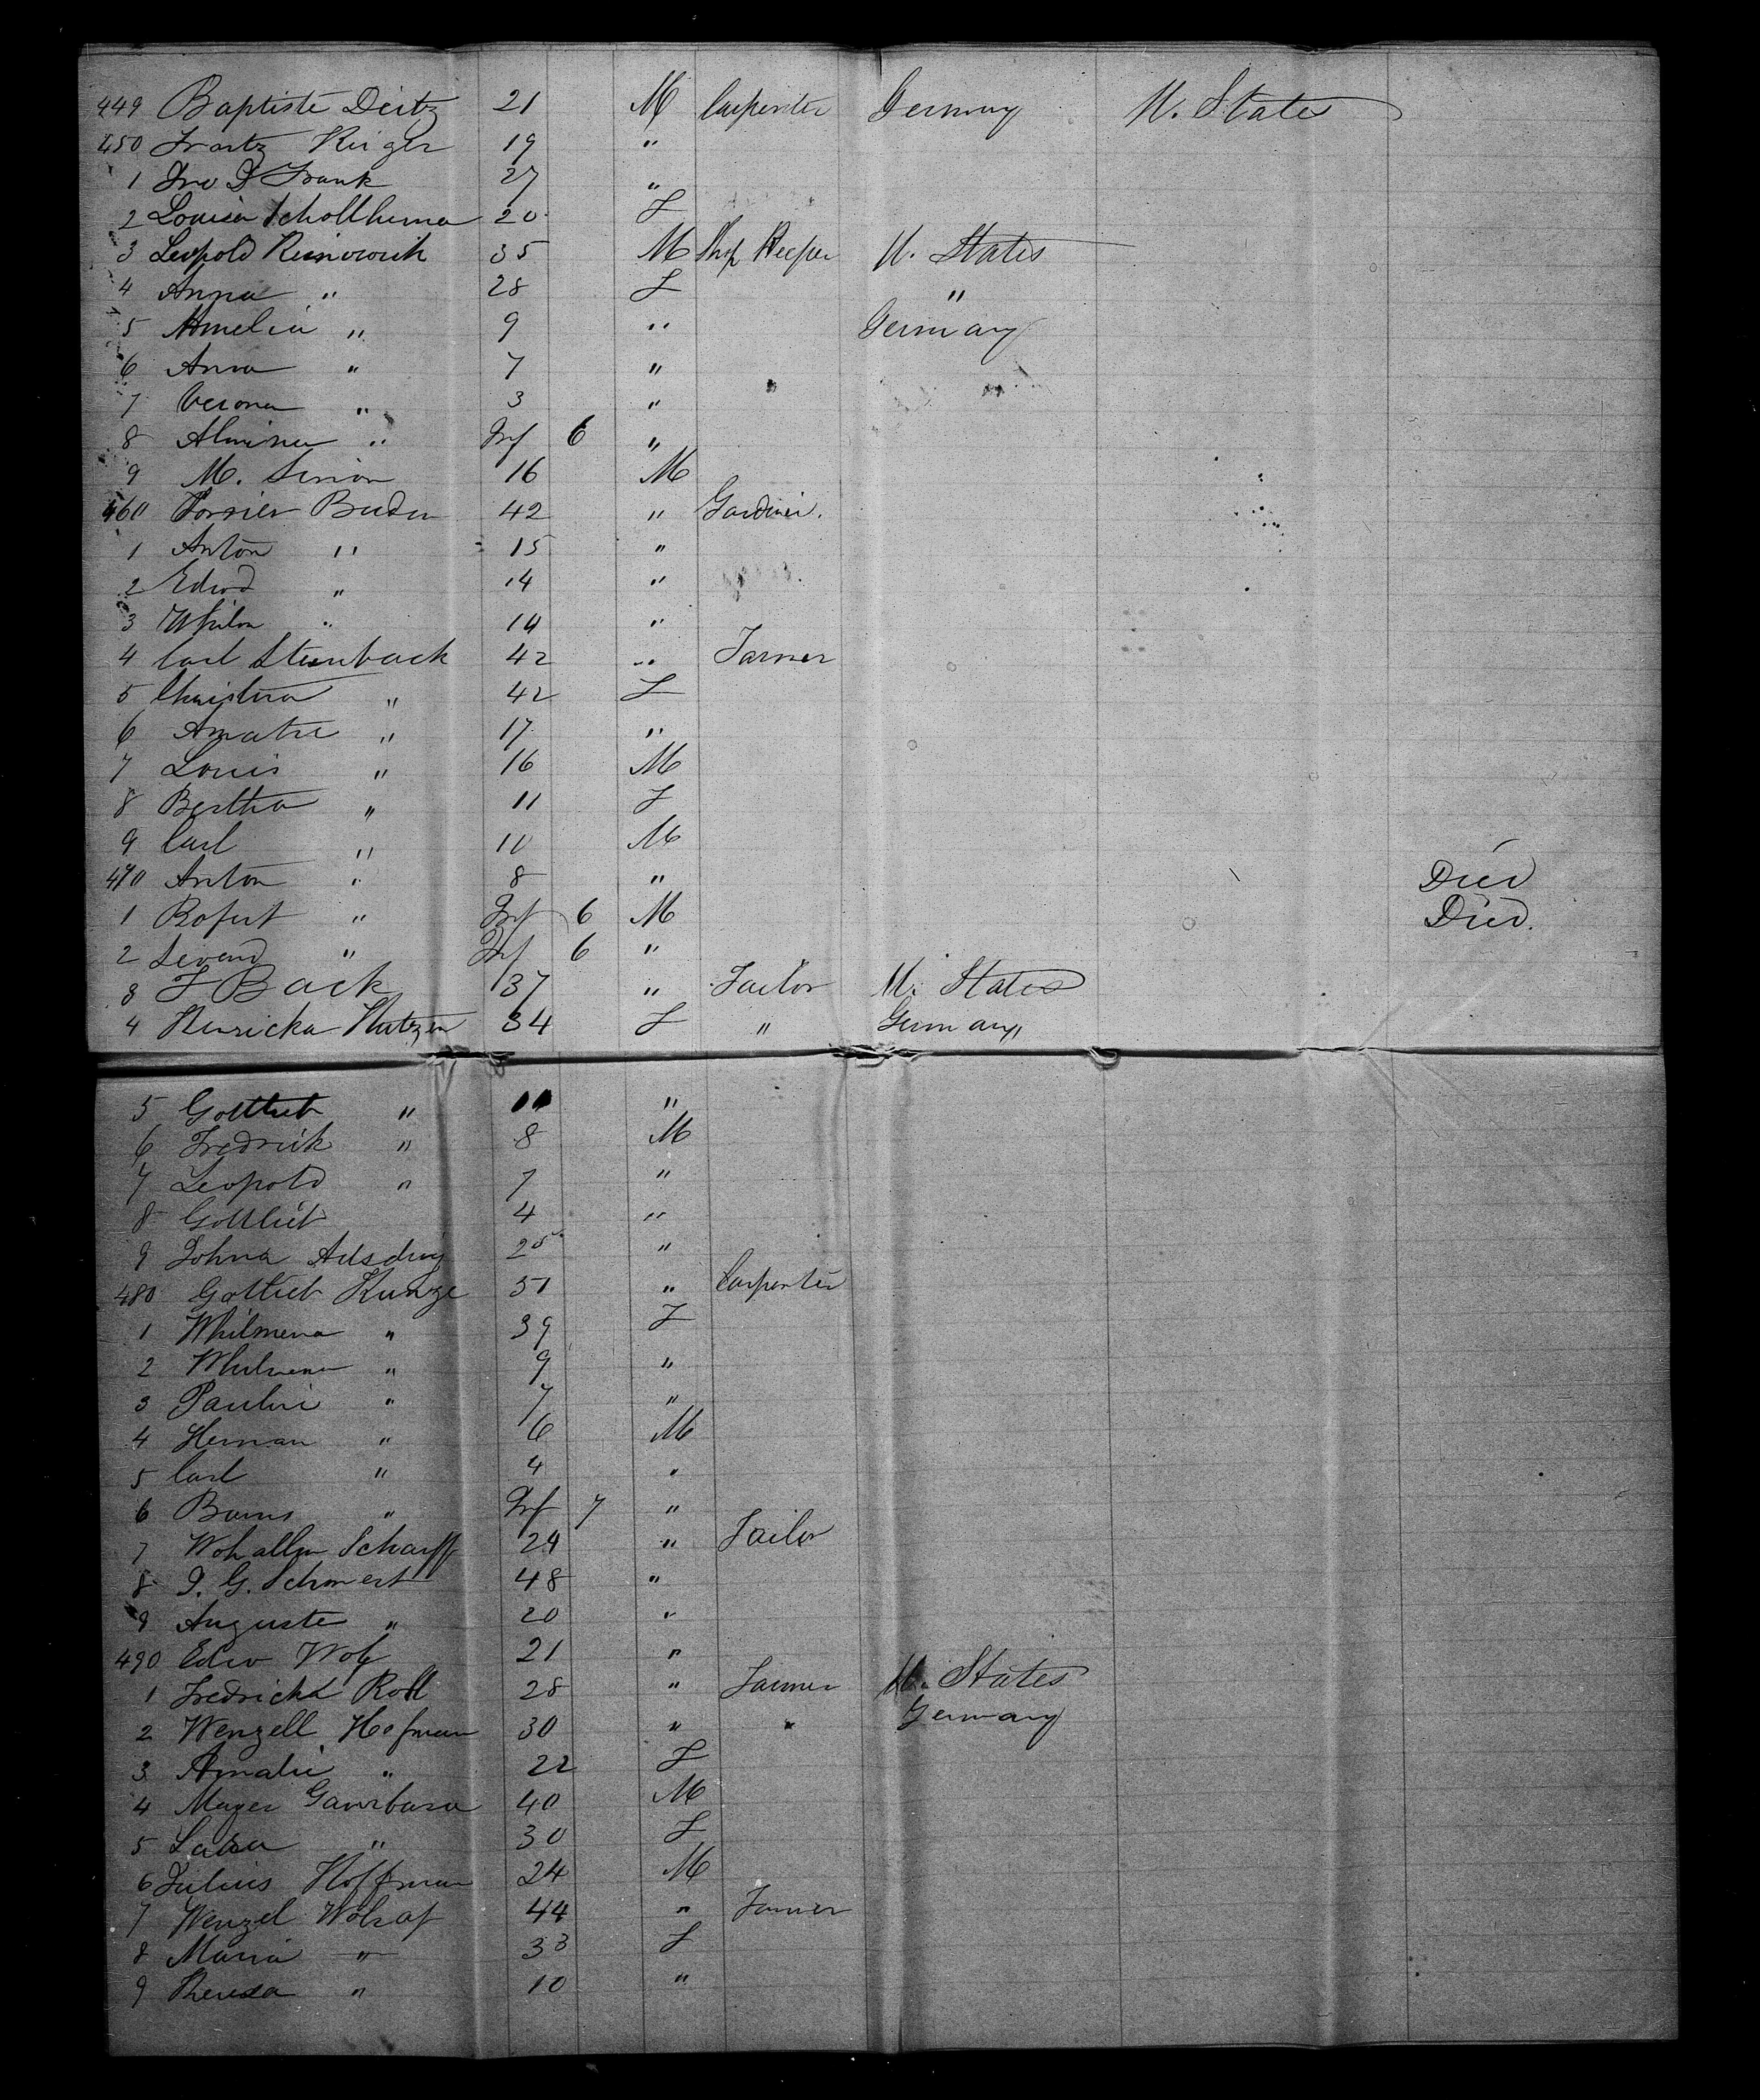 449 Baptiste Deitz 21 M Carpenter Germany U. States
450 Frantz Kiriger 19 "
1 Jno D Frank 27 "
2 Louisa Schollhema 20 F
3 Leopold 35 M Shop Keeper U. States
4 Anna " 28 F "
5 Amelia " 9 " Germany
6 Anna " 7 "
7 Verona " 3 "
8 Almina " Inf 6 "
9 M. Simon 16 M
460 Buder 42 " Gardiner.
1 Anton " 15 "
2 Edwd " 14 "
3 " 14 "
4 Carl Steinback 42 " Farmer
5 Christina " 42 F
6 Amatie " 17 "
7 Louis " 16 M
8 Bertha " 11 F
9 Carl " 10 M
470 Anton " 8 " Died
1 Robert " Inf 6 M Died.
2 " Inf 6 "
3 F Back 37 " Tailor U. States
4 Henricka Hutzen 34 F " Germany
5 Gottlieb " "
6 Fredrick " 8 M
7 Leopold " 7 "
8 Gottlieb 4 "
9 Johna 25 "
480 Gottlieb Kunze 51 " Carpenter
1 Whilmena " 39 F
2 Whilmena " 9 "
3 Paulin " 7 "
4 Herman " 6 M
5 Carl " 4 "
6 " Inf 7 "
7 Scharff 24 " Tailor
8 J. G. Schonert 48 "
9 Auguste " 20 "
490 Edw Wolf 21 "
1 Fredricka Roll 28 " Farmer U. States
2 Wenzell Hofman 30 " " Germany
3 Amalie " 22 F
4 Mayer 40 M
5 " 30 F
6 Julius Hoffman 24 M
7 Wenzel Wolsaf 44 " Farmer
8 Maria " 33 F
9 Theresa " 10 "